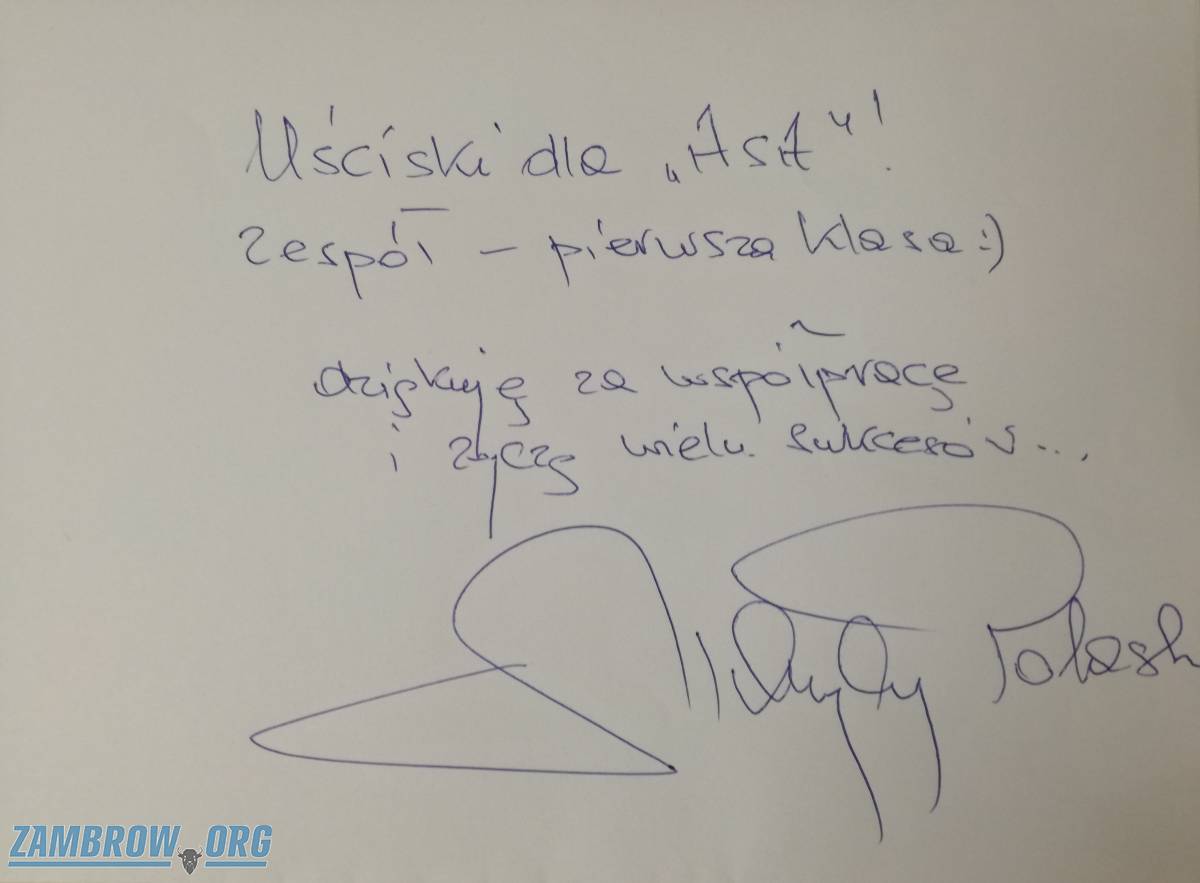 Uściski dla „AsA"!
Zespół – pierwsza klasa :)
dziękuję za współpracę
i życzę wielu sukcesów...
ZAMBROW.ORG